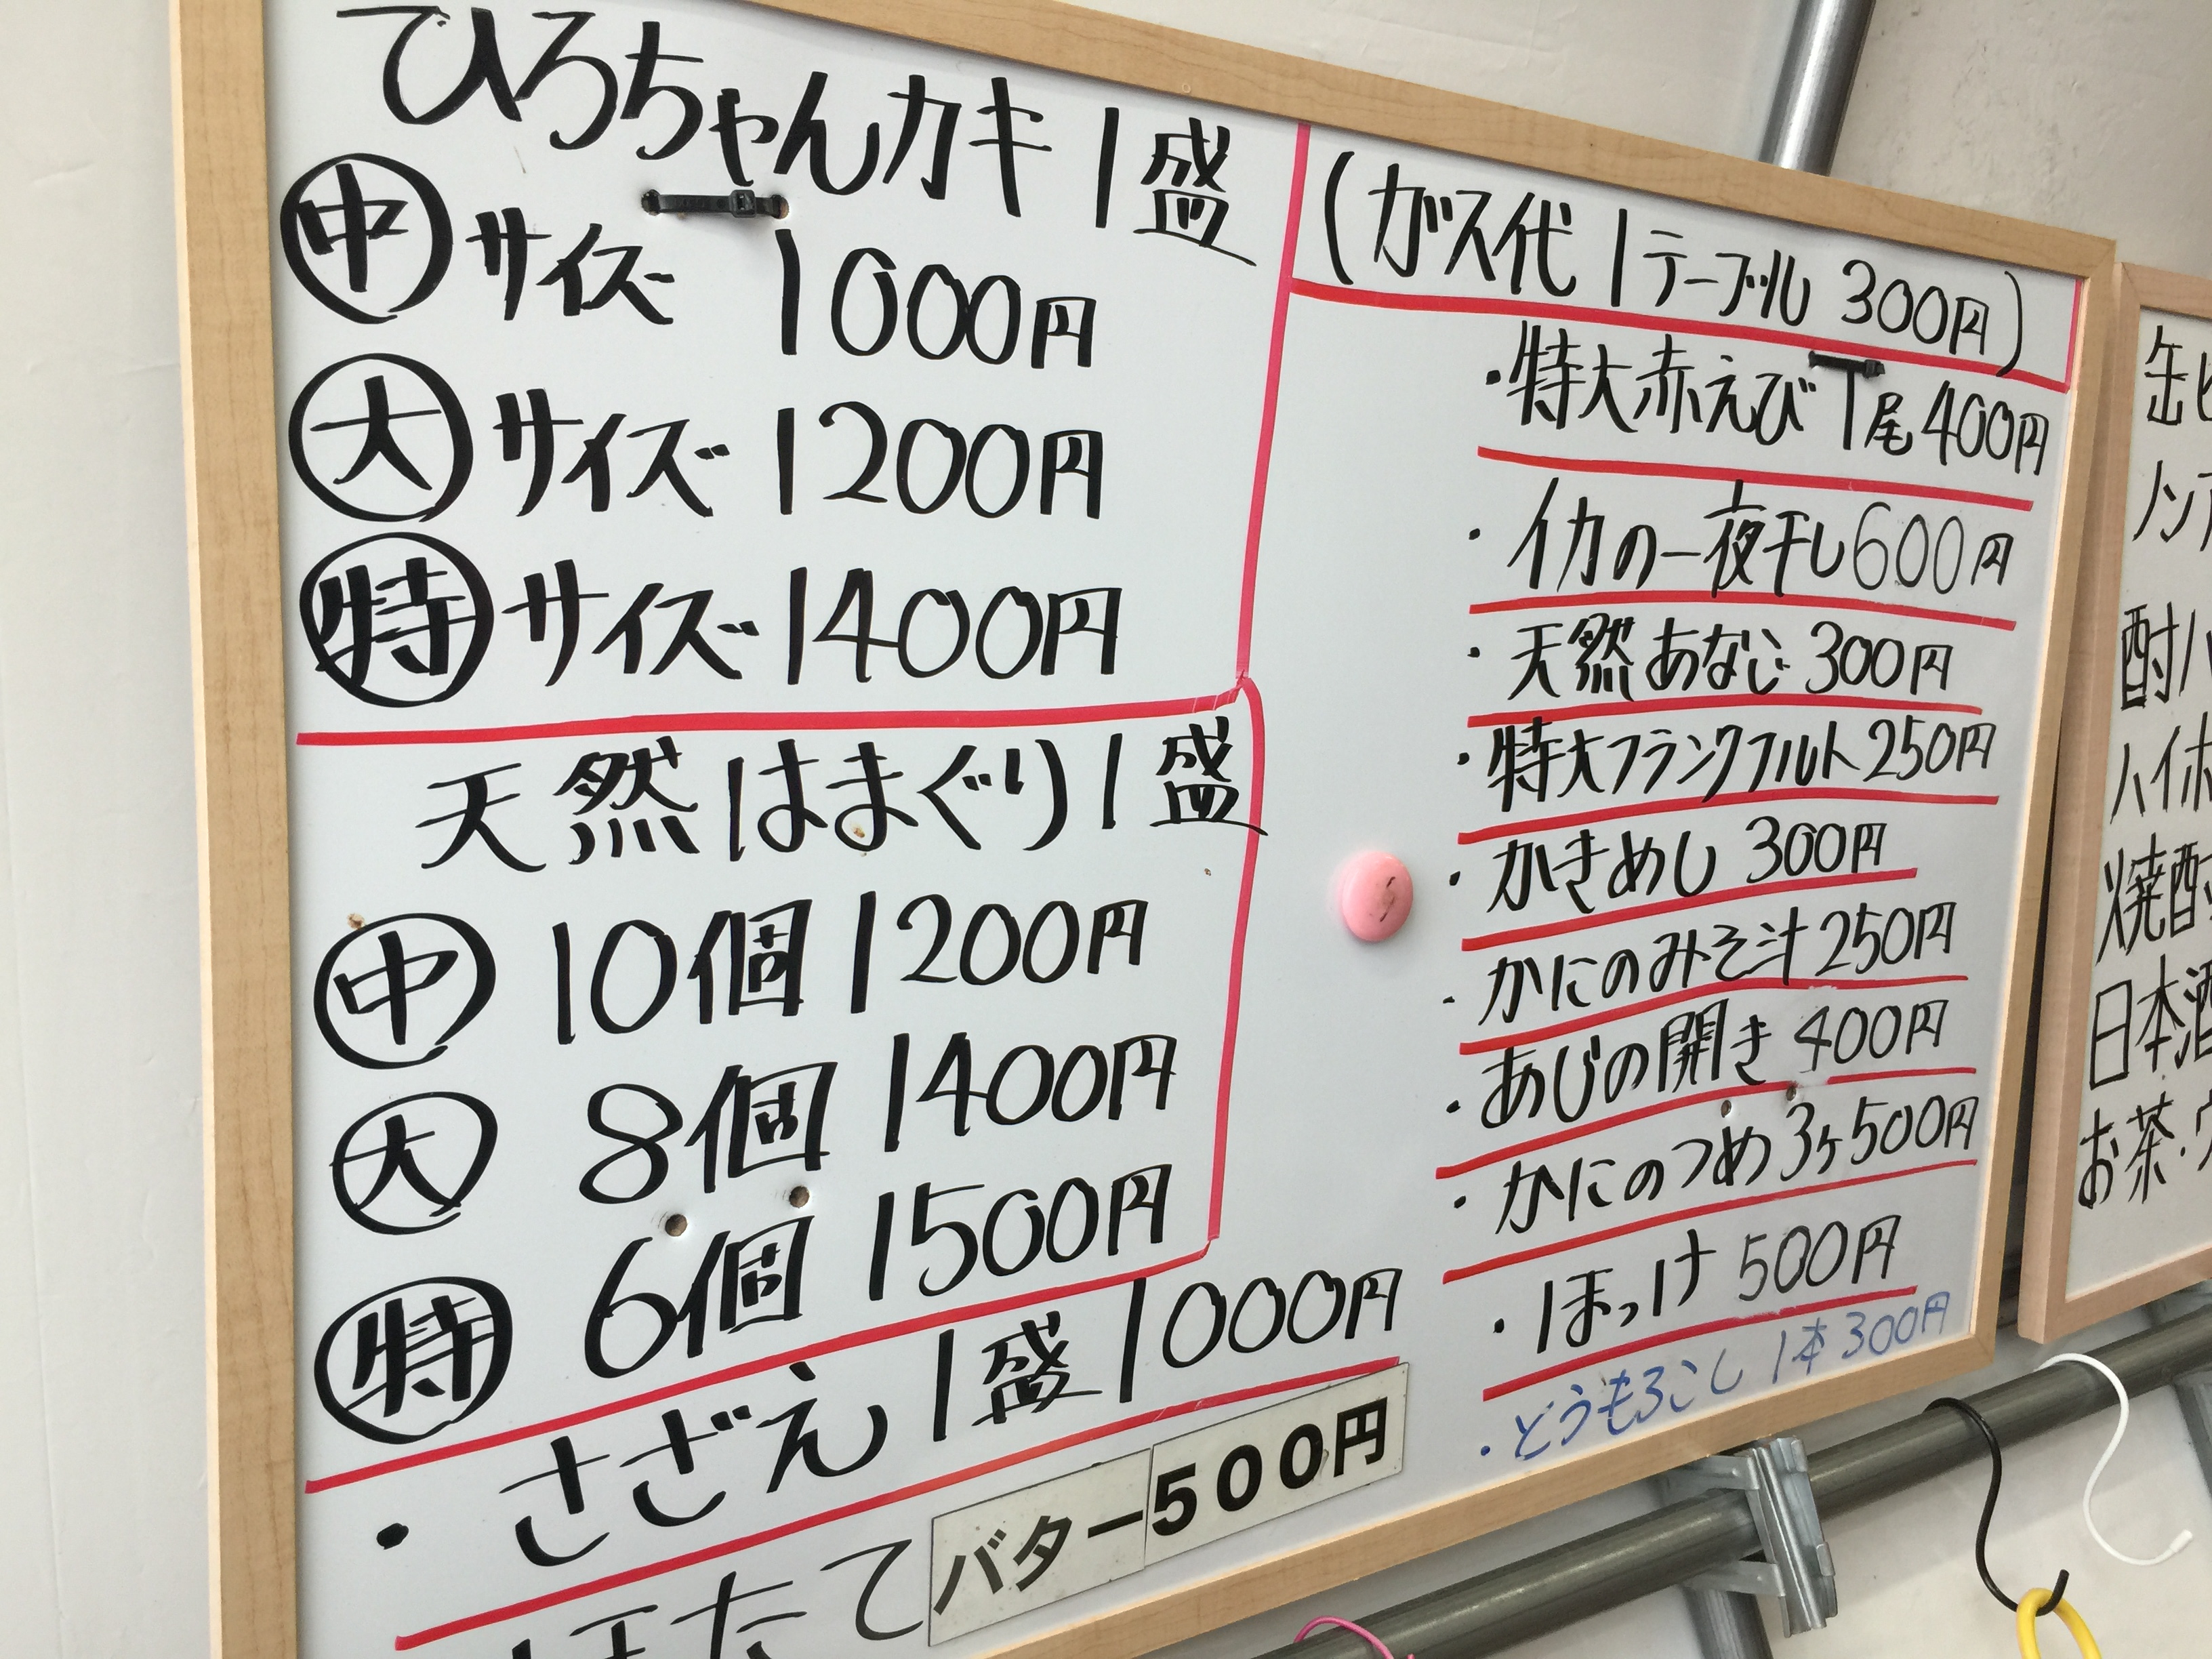 ひろちゃんカキ1盛
中サイズ 1000円
大サイズ 1200円
特サイズ 1400円
天然はまぐり1盛
中 10個 1200円
大 8個 1400円
特 6個 1500円
・さざえ1盛1000円
ほたて バター500円
(ガス代1テーブル 300円)
・特大赤えび1尾400円
・イカの一夜干し600円
・天然あなご300円
・特大フランクフルト250円
・かきめし300円
・かにのみそ汁250円
・あじの開き400円
・かにのつめ3ヶ500円
・ほっけ500円
・とうもろこし1本300円
缶ビ
ノンア
酎ハ
ハイボ
焼酎
日本酒
お茶・ウ